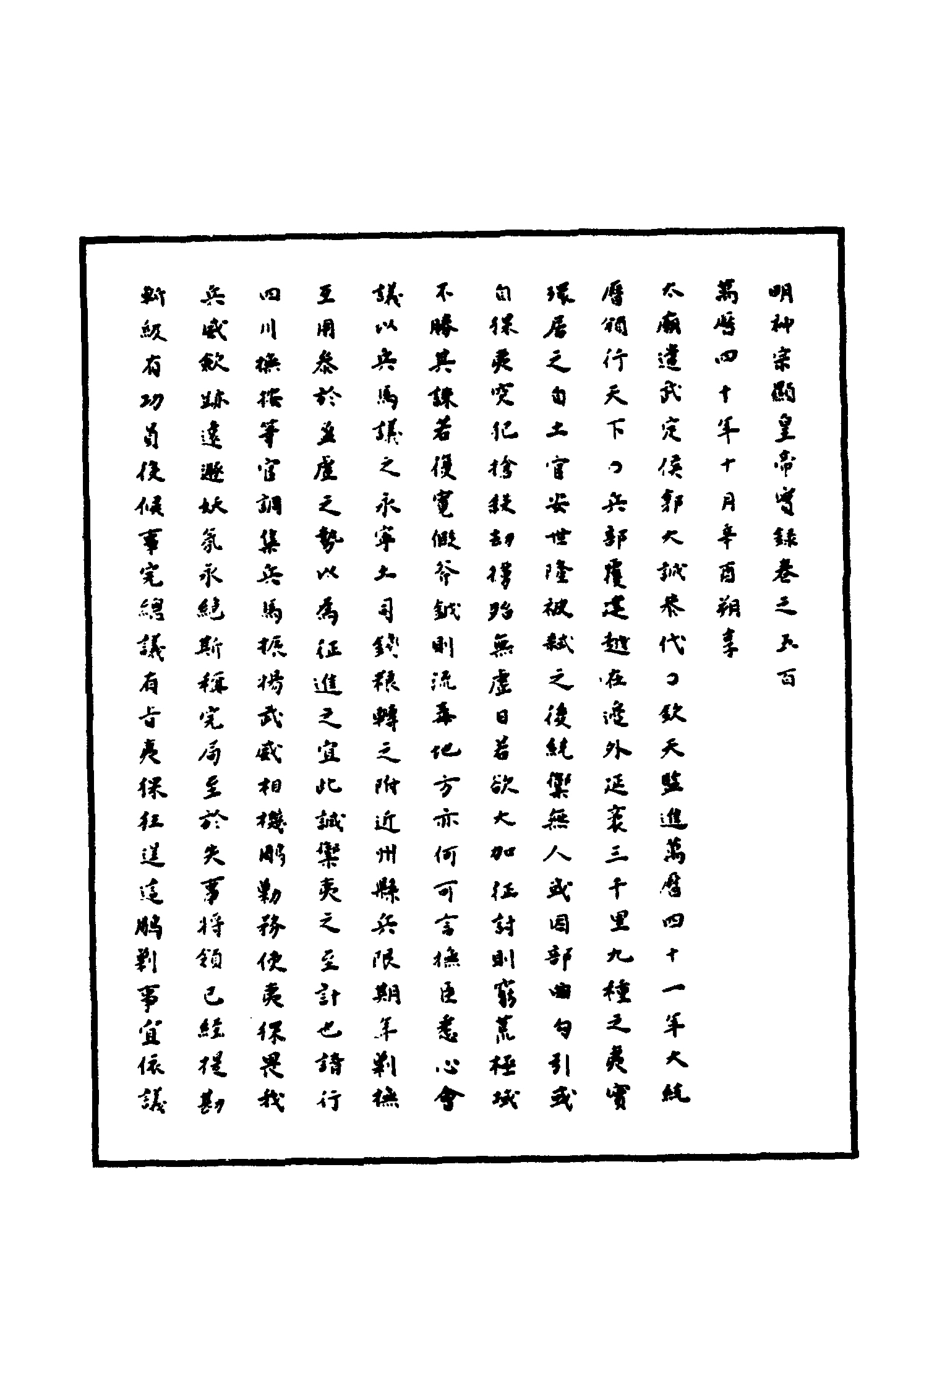 明神宗顯皇帝實錄卷之五百
萬曆四十年十月辛酉朔享
太廟遣武定侯郭大誠恭代○欽天監進萬曆四十一年大統
曆頒行天下○兵部覆建越在邊外延袤三千里九種之夷實
環居之自土官安世隆被弒之後統禦無人或因部曲勾引或
自保夷突犯搶殺劫擄殆無虛日若欲大加征討則窮荒極域
不勝其誅若復寬假斧鉞則流毒地方亦何可言撫臣悉心會
議以兵馬議之永寧土司錢糧轉之附近州縣兵限期年剿撫
互用參於盈虛之勢以為征進之宜此誠禦夷之至計也請行
四川撫按等官調集兵馬振揚武威相機鵰勦務使夷保畏我
兵威歛跡遠遯妖氛永絕斯稱完局至於失事將領已經提勘
斬級有功員役候事完總議有旨夷保狂逞這鵰剿事宜依議